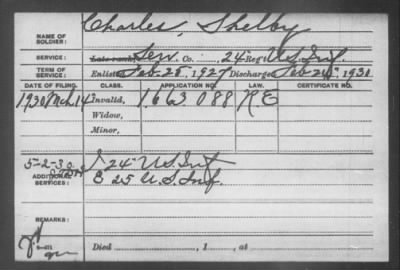 NAME OF SOLDIER: Charles, Shelby
SERVICE: Late rank, Serv. Co. 24 Reg't U.S. Inf.
TERM OF SERVICE: Enlisted Feb. 25, 1927 Discharged Feb 24, 1930
DATE OF FILING. CLASS. APPLICATION NO. LAW. CERTIFICATE NO.
1930 Mch 14 Invalid, 1663 088 R E
Widow,
Minor,
5-2-30
ADDITIONAL SERVICES: 24" U.S. Inf
E 25 U.S. Inf.
REMARKS:
Died , 1 , at